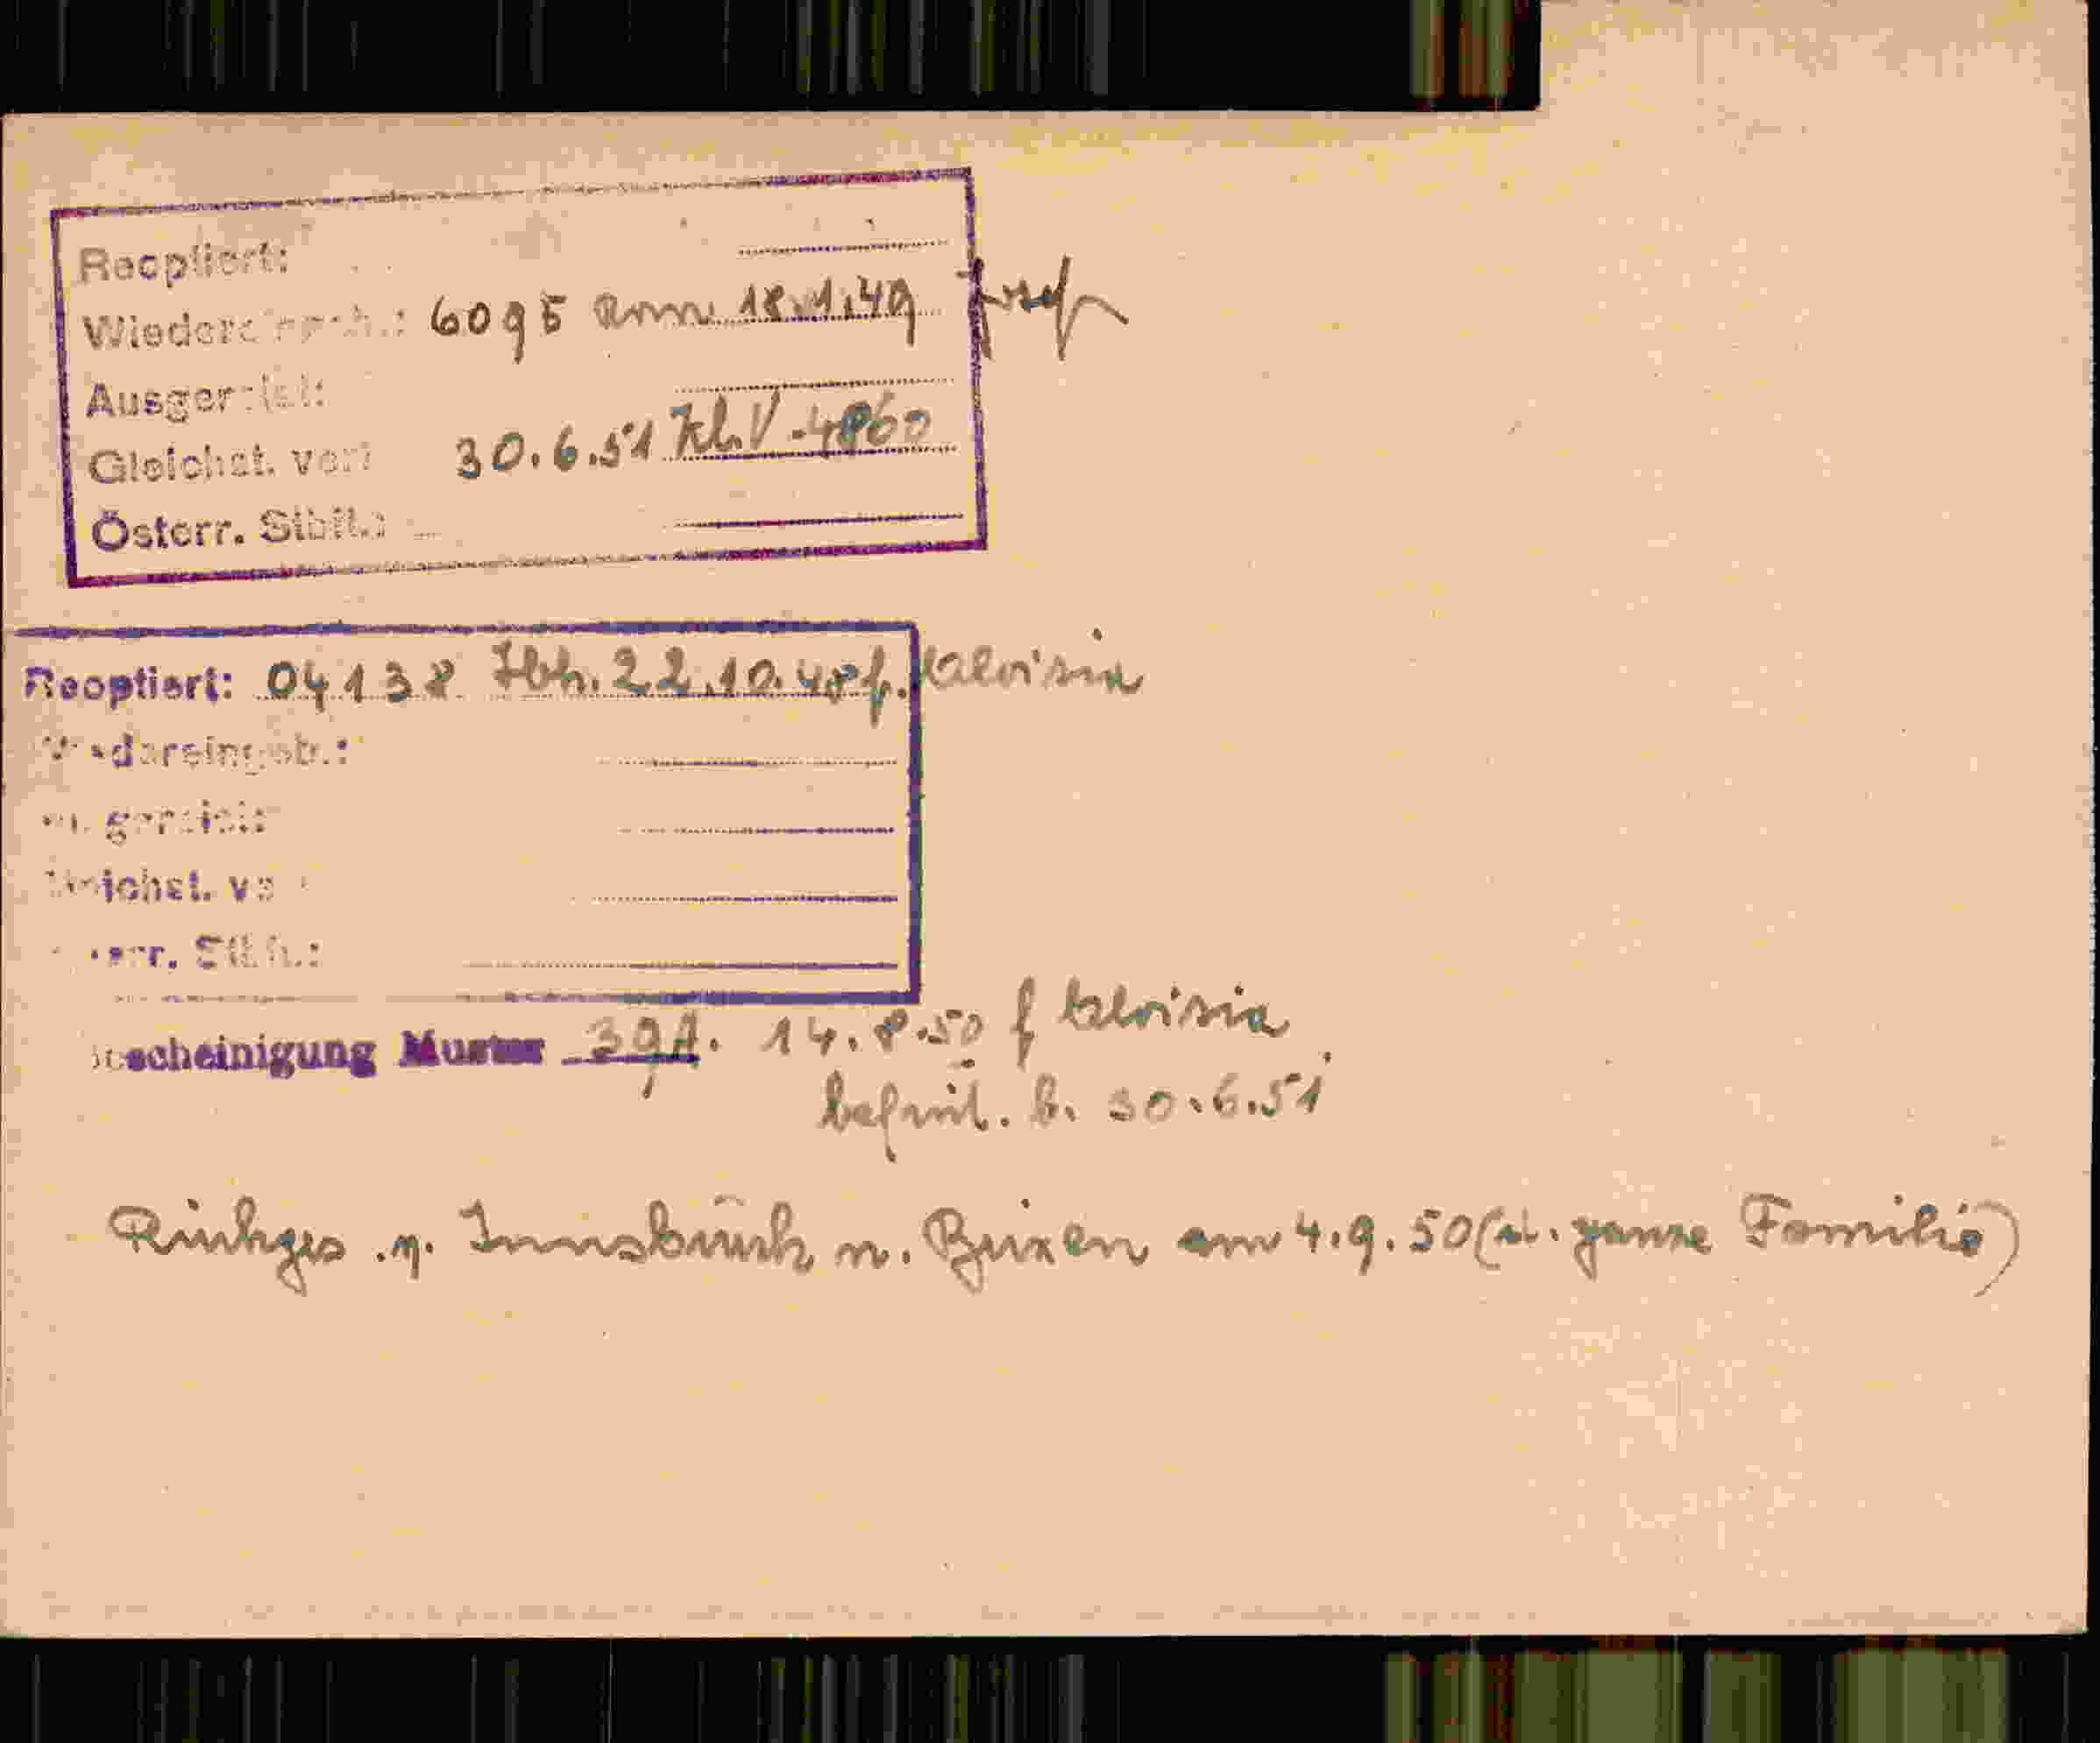 Reoptiert:
Wiedereingeb.: 6095 Rom 18.1.49 Josef
Ausgereist:
Gleichst. verl. 30.6.51 Kl. V. 4860
Österr. Stb.:
Reoptiert: 04138 Ibk. 22.10.48 f. Aloisia
Wiedereingeb.:
Ausgereist:
Gleichst. ve
Österr. Stb.:
Bescheinigung Muster 39A. 14.8.50 f Aloisia
befrist. b. 30.6.51
Rückges. v. Innsbruck n. Brixen am 4.9.50 (d. ganze Familie)